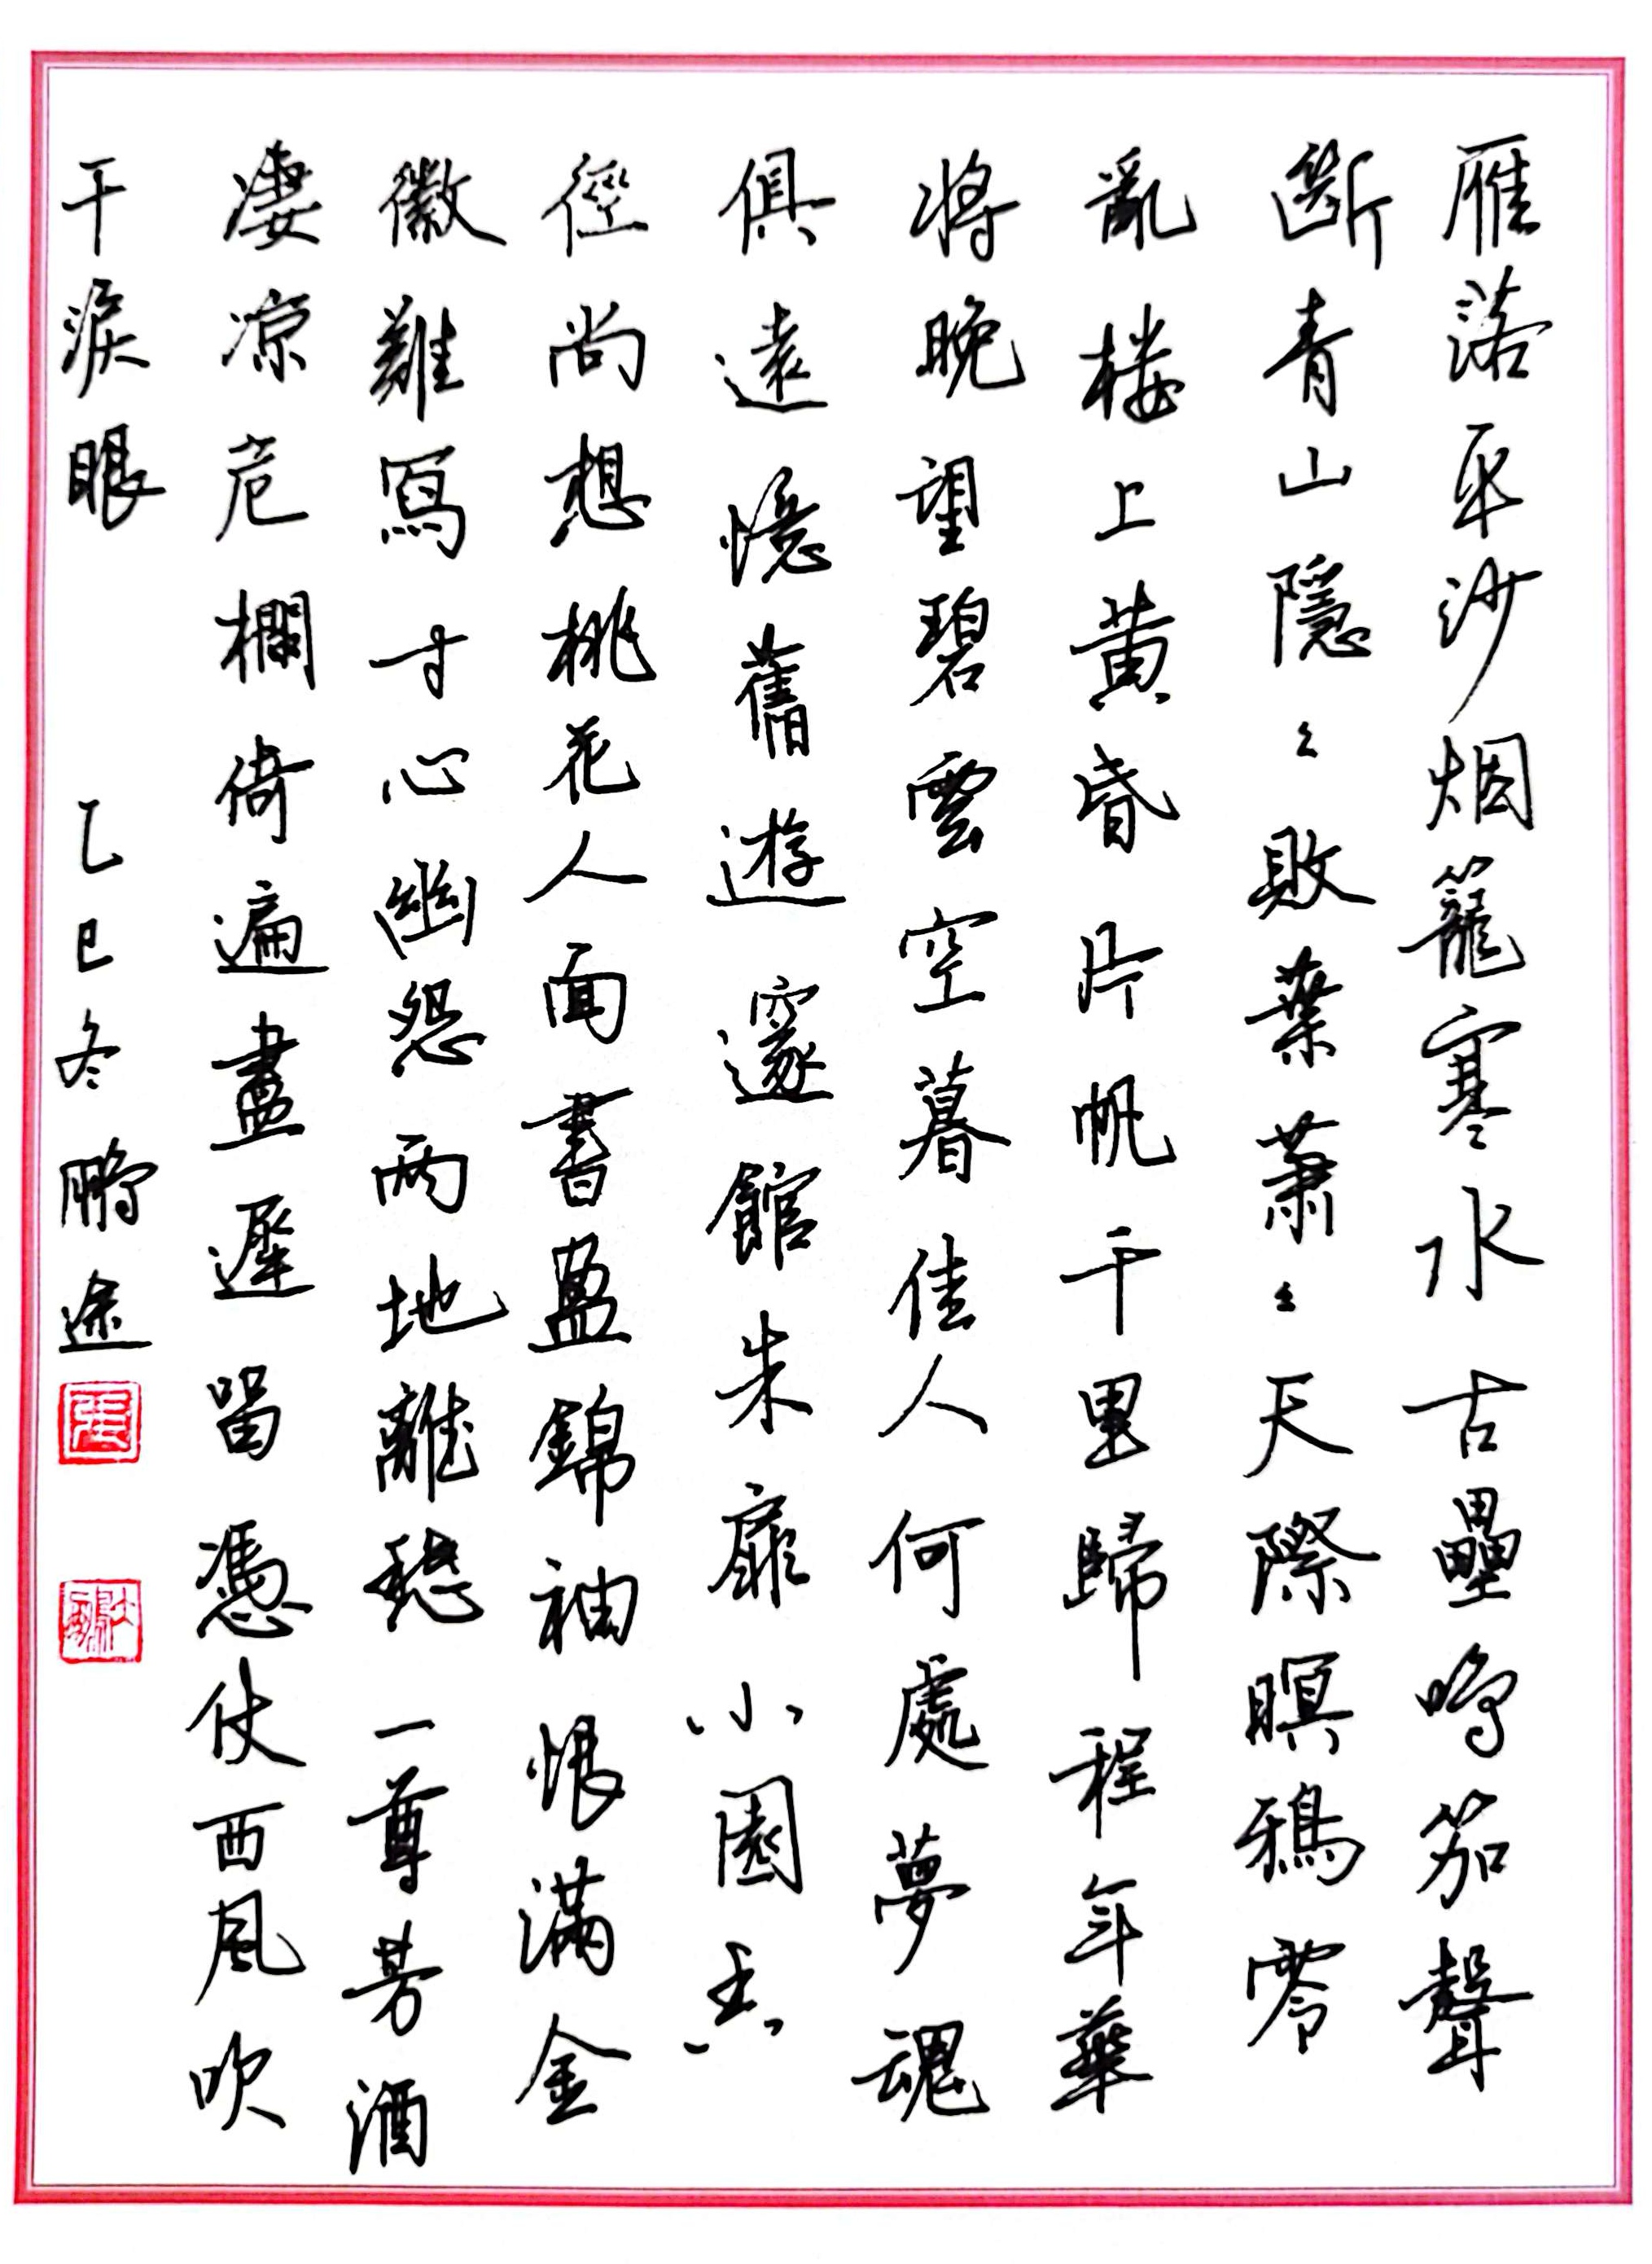 雁落平沙烟籠寒水古壘鳴笳聲
斷青山隱々敗葉蕭々天際暝鴉零
亂樓上黃昏片帆千里歸程年華
將晚望碧雲空暮佳人何處夢魂
俱遠憶舊遊邃館朱扉小園香
徑尚想桃花人面書盈錦袖恨滿金
徽難寫寸心幽怨兩地離愁一尊芳酒
凄凉危欄倚遍盡遲留憑仗西風吹
干淚眼
乙巳冬鵬途